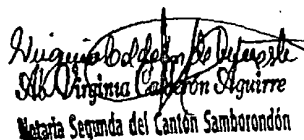 Ab. Virginia Calderón Aguirre
Notaria Segunda del Cantón Samborondón